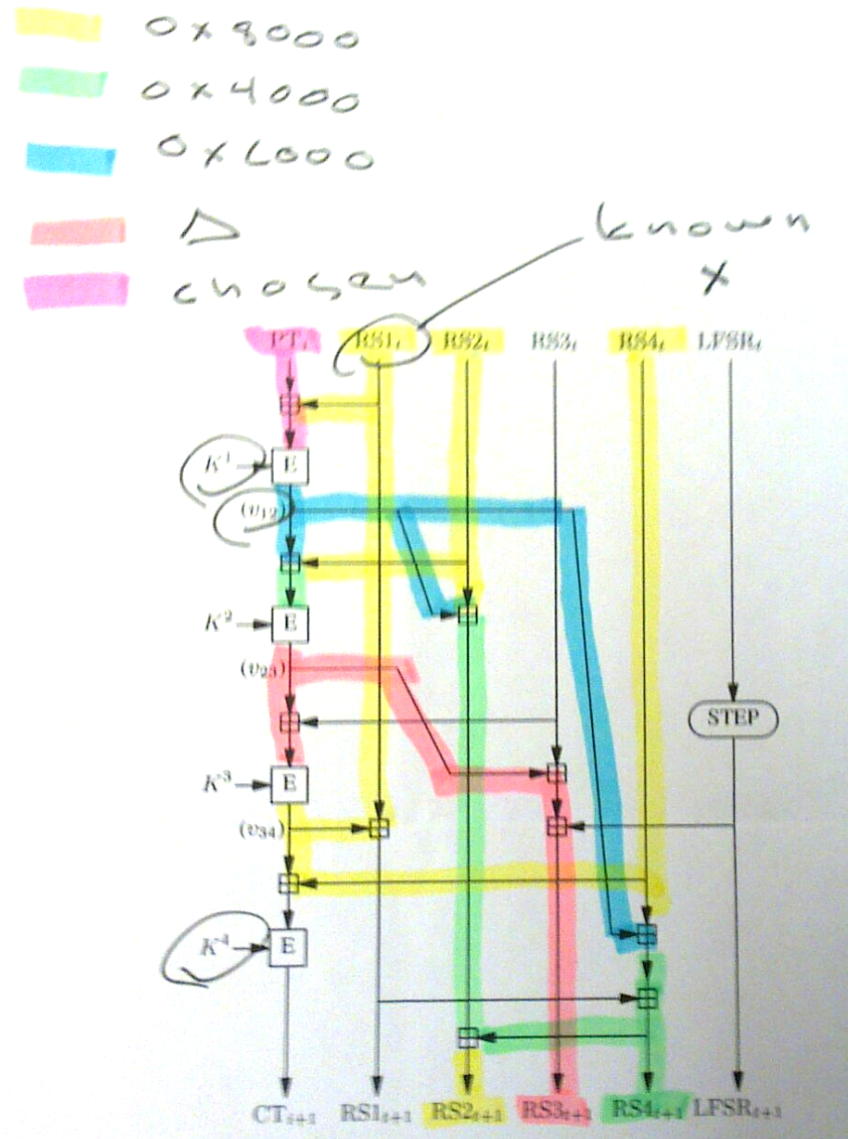 0x8000
0x4000
0xC000
Δ
chosen
known
x
PT_t RS1_t RS2_t RS3_t RS4_t LFSR_t
K^1 E
(v_12)
K^2 E
(v_23)
STEP
K^3 E
(v_34)
K^4 E
CT_{t+1} RS1_{t+1} RS2_{t+1} RS3_{t+1} RS4_{t+1} LFSR_{t+1}